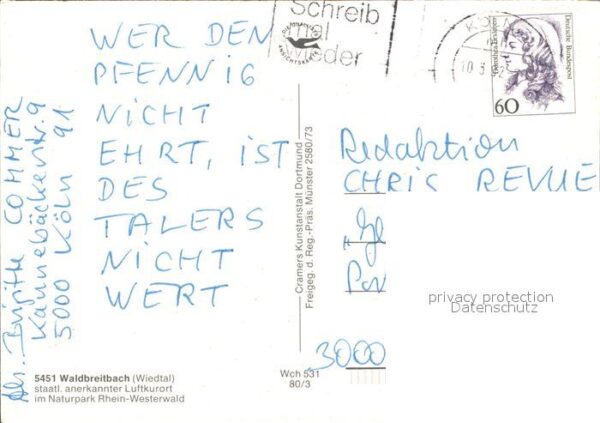 WER DEN
PFENNIG
NICHT
EHRT, IST
DES
TALERS
NICHT
WERT
Abs. Birgitta COMMER
Kannebäckerstr. 9
5000 KÖLN 91
Schreib
mal
wieder
10.3.
Deutsche Bundespost
60
Redaktion
CHRIS REVUE
3000
privacy protection
Datenschutz
Cramers Kunstanstalt Dortmund
Freigeg. d. Reg.-Präs. Münster 2580/73
5451 Waldbreitbach (Wiedtal)
staatl. anerkannter Luftkurort
im Naturpark Rhein-Westerwald
Wch 531
80/3